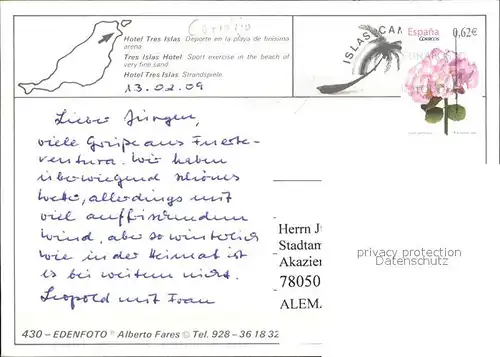 Corralejo
Hotel Tres Islas Deporte en la playa de finísima
arena
Tres Islas Hotel Sport exercise in the beach of
very fine sand
Hotel Tres Islas Strandspiele
13.02.09
ISLAS CAN
España
CORREOS
0,62€
Lieber Jürgen,
viele Grüße aus Fuerte-
ventura. Wir haben
überwiegend schönes
Wetter, allerdings mit
viel auffrischendem
Wind, aber so winterlich
wie in der Heimat ist
es bei weitem nicht.
Leopold mit Frau
Herrn J
Stadtam
Akazien
78050
ALEM
privacy protection
Datenschutz
430 - EDENFOTO © Alberto Fares © Tel. 928 - 36 18 32